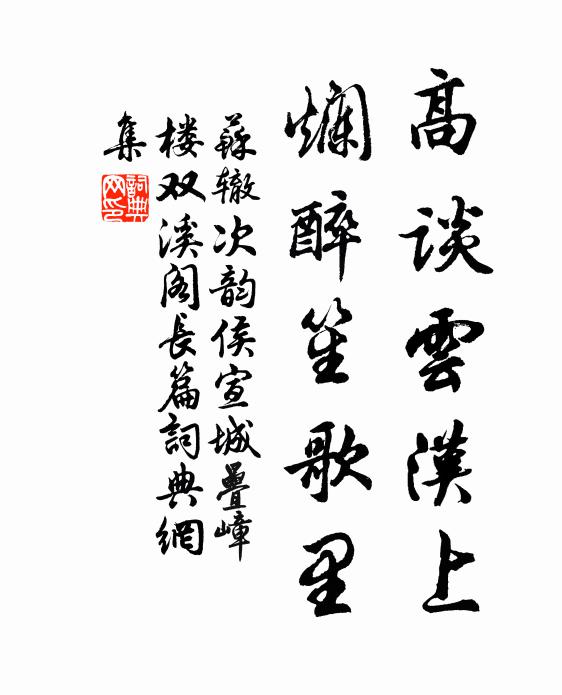 高谈雲漢上
爛醉笙歌里
蘇辙次韵侯宣城疊嶂
楼双溪阁長篇詞典網
集
詞典网印